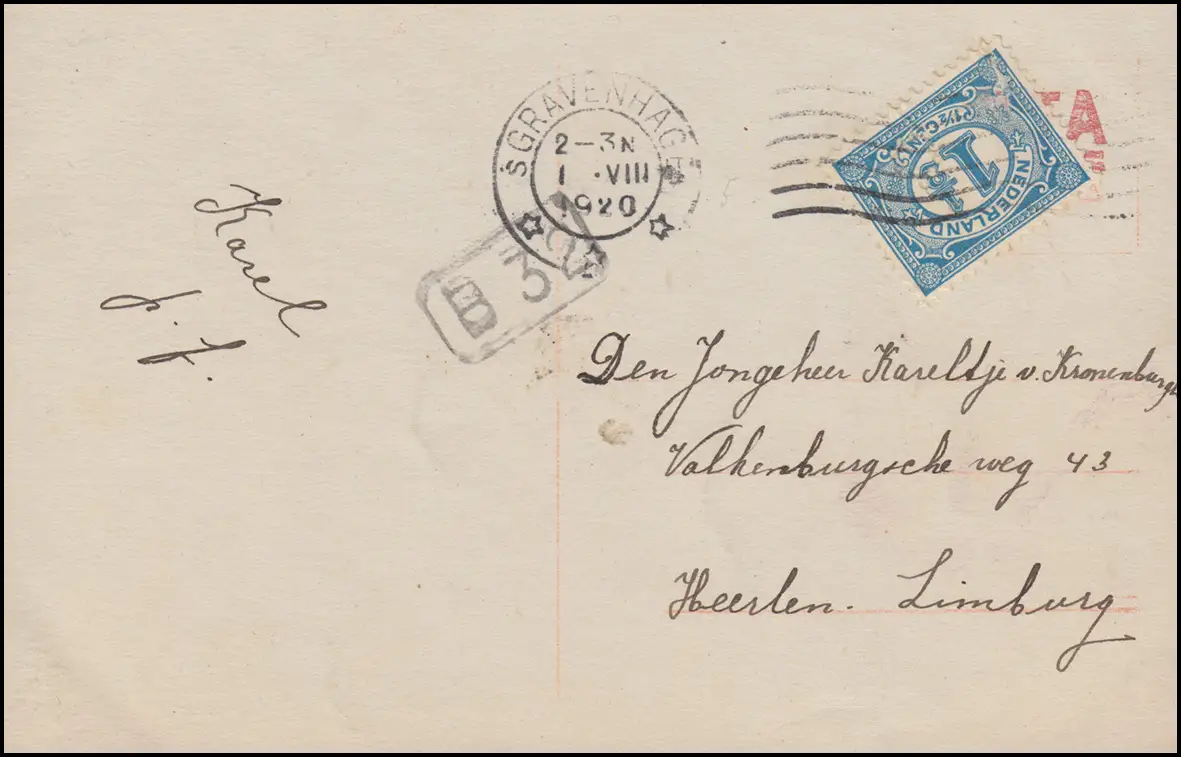 'SGRAVENHAGE
2–3N
1 .VIII
1920
NEDERLAND
1½
1½ CENT
B 32
Karel
p. f.
Den Jongeheer Kareltje v. Kronenburg
Valkenburgsche weg 43
Heerlen. Limburg